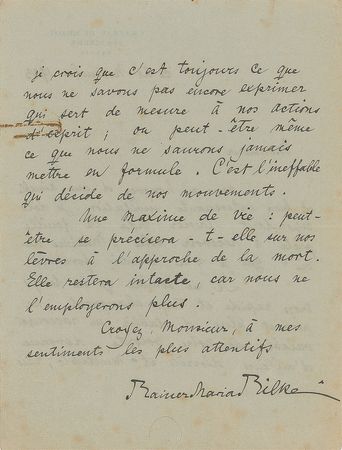 je crois que c'est toujours ce que
nous ne savons pas encore exprimer
qui sert de mesure à nos actions
d'esprit ; ou peut-être même
ce que nous ne saurons jamais
mettre en formule. C'est l'ineffable
qui décide de nos mouvements.
Une Maxime de vie : peut-
être se précisera-t-elle sur nos
lèvres à l'approche de la mort.
Elle restera intacte, car nous ne
l'employerons plus.
Croyez, Monsieur, à mes
sentiments les plus attentifs
Rainer Maria Rilke